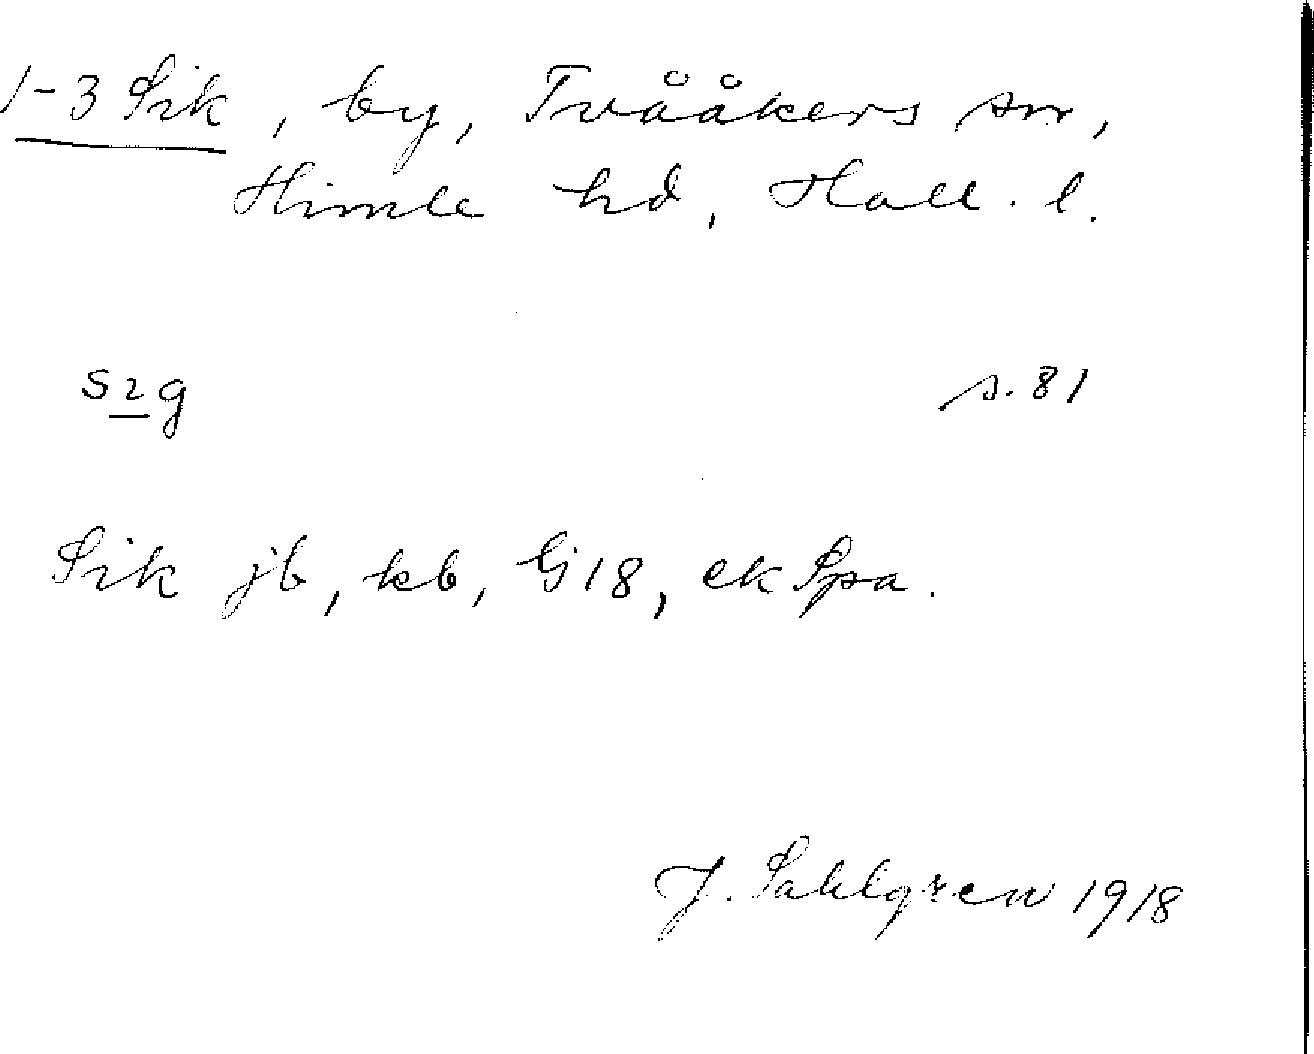 1-3 Sik, by, Tvååkers sn,
Himle hd, Hall. l.
sɩg s. 81
Sik jb, kb, G18, ek Spa.
J. Sahlgren 1918